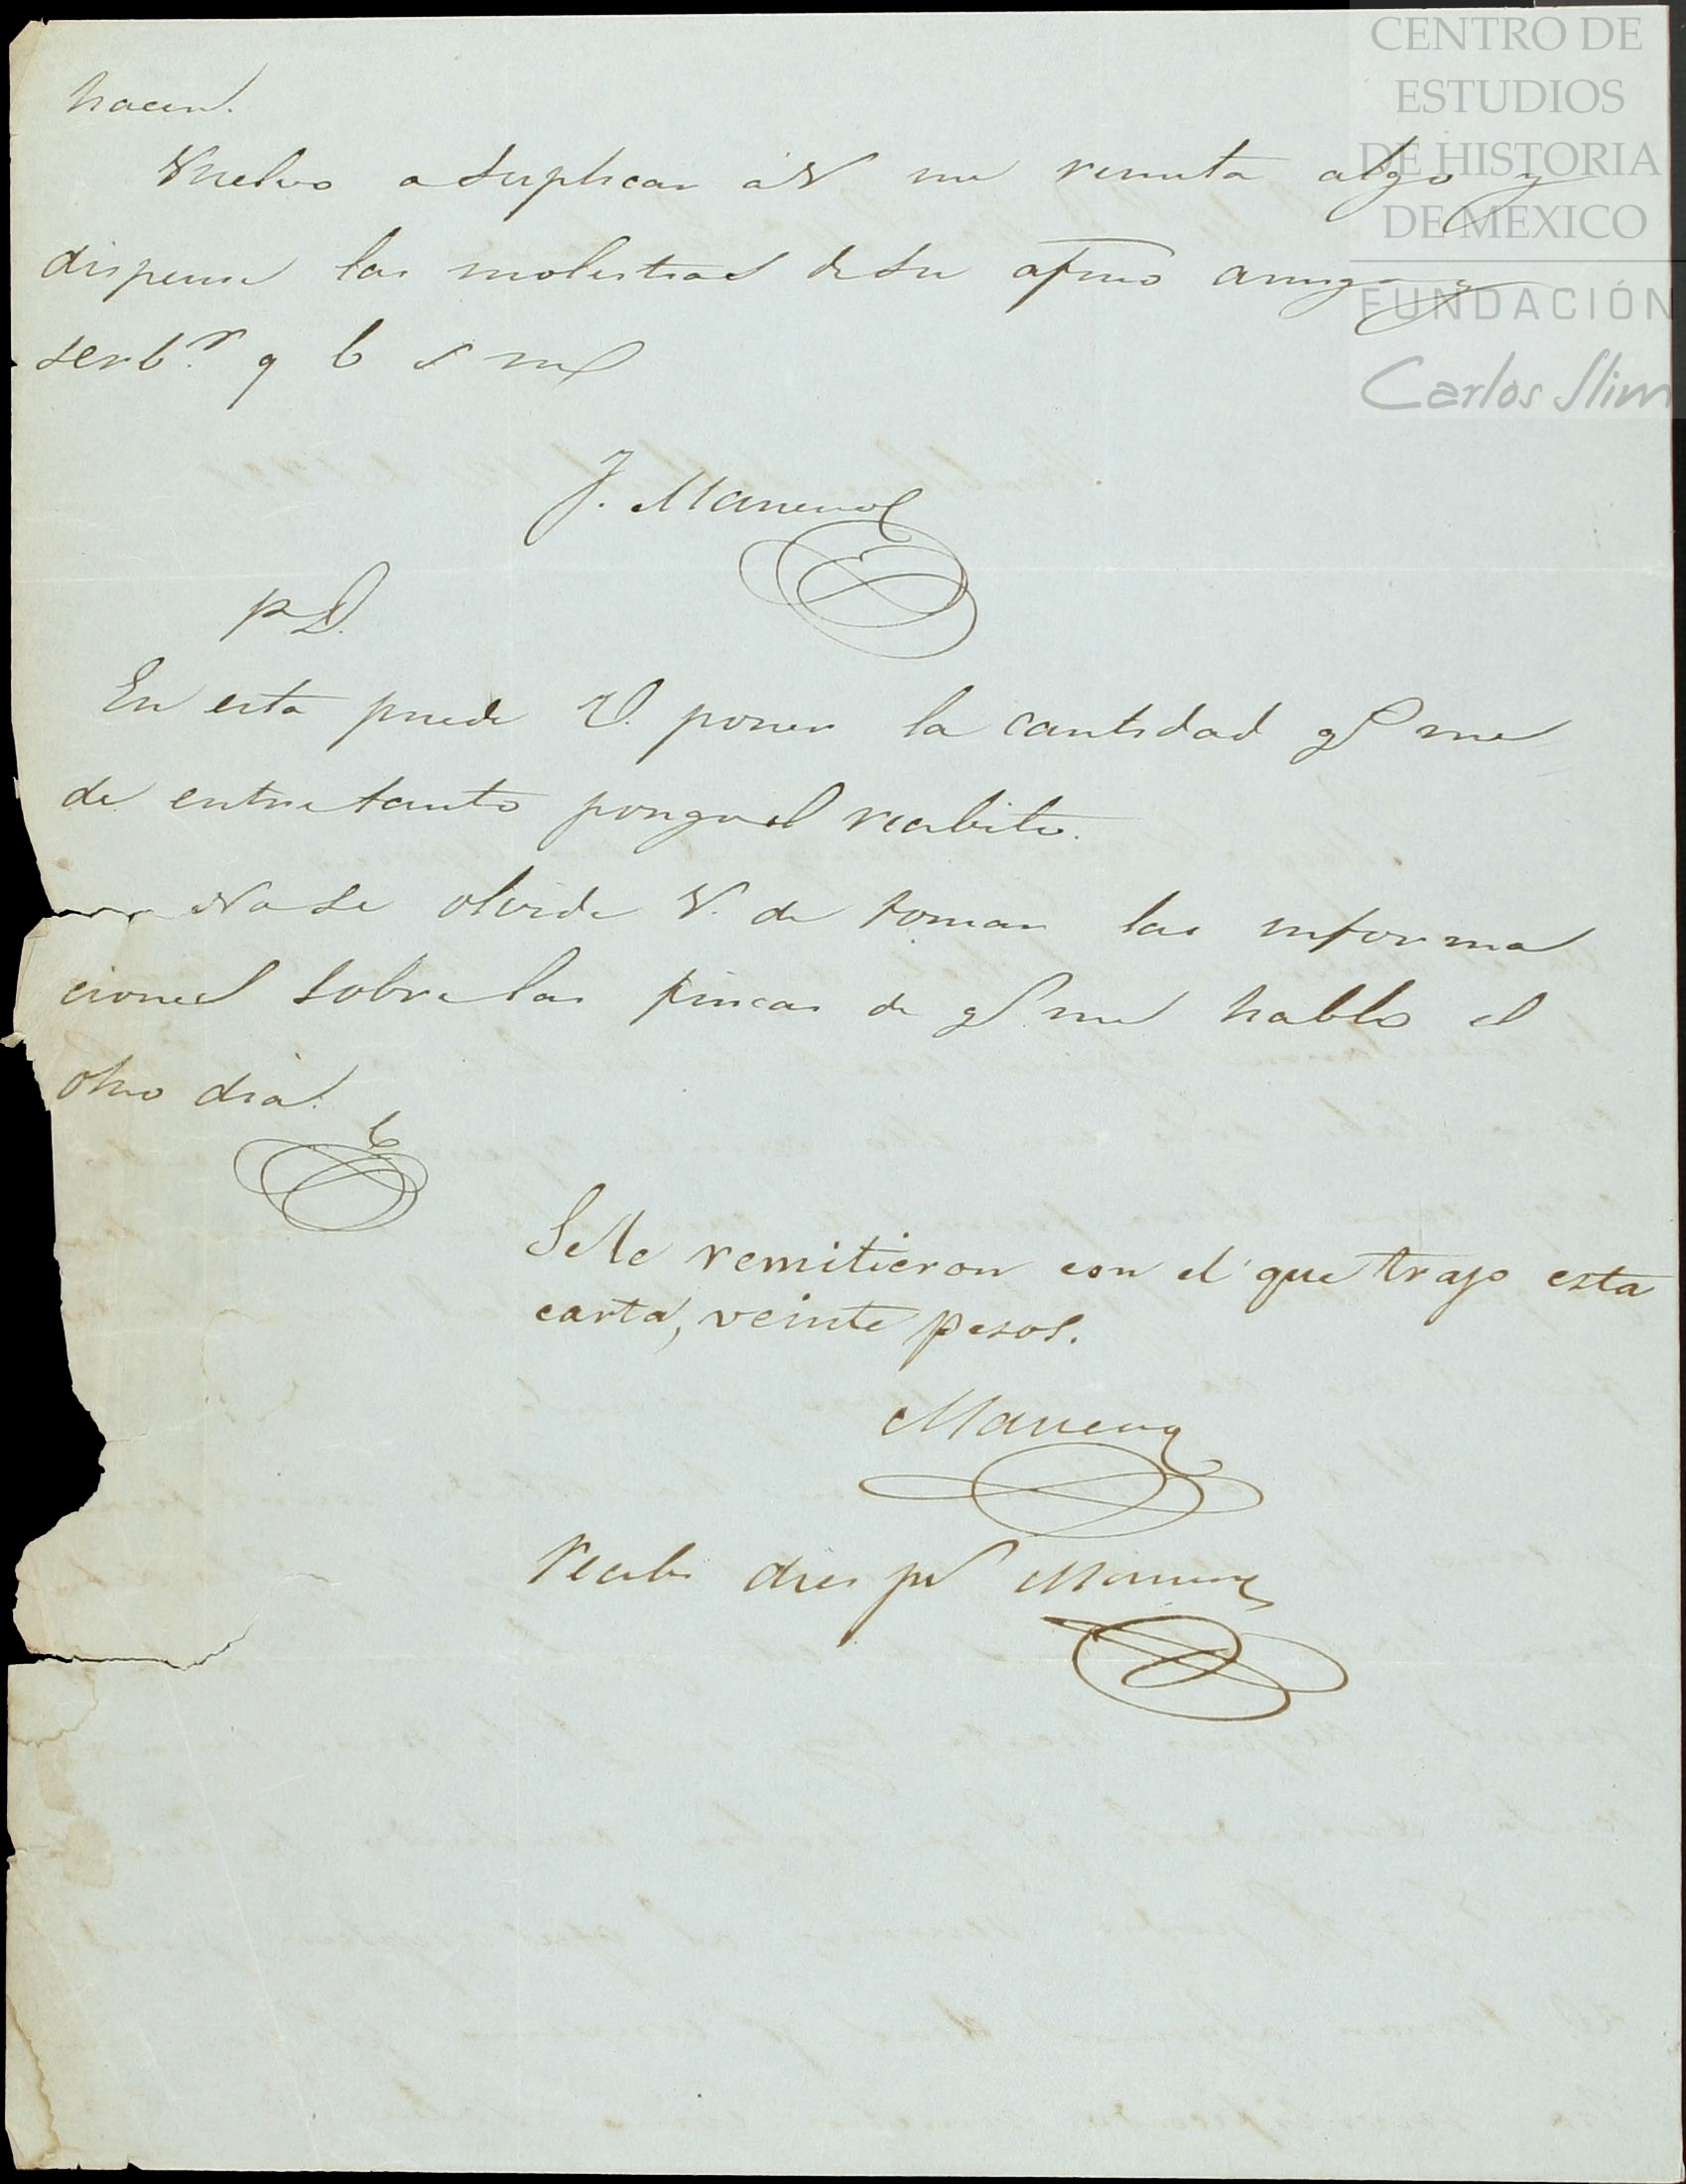 CENTRO DE
ESTUDIOS
DE HISTORIA
DE MEXICO
FUNDACIÓN
Carlos Slim
hacen.
Vuelvo a suplicar á V me remita algo y
dispense las molestias de su afmo amigo y
serbr. q b s m
J.
PD.
En esta puede V. poner la cantidad qe me
de entretanto pongo el recibito.
No se olvide V. de tomar las informa
ciones sobre las fincas de qe me hablo el
otro dia.
Se le remitieron con el que trajo esta
carta, veinte pesos.
Recibi dies ps